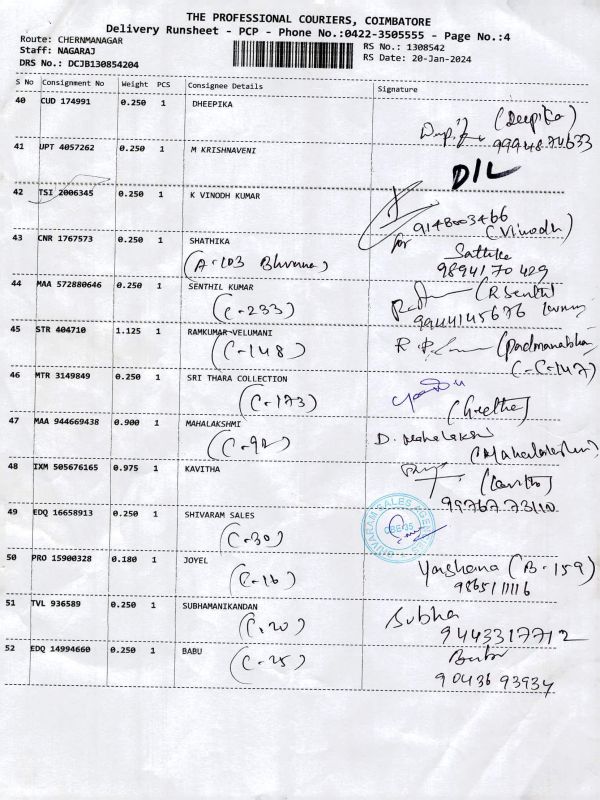 THE PROFESSIONAL COURIERS, COIMBATORE
Delivery Runsheet - PCP - Phone No.:0422-3505555 - Page No.:4
Route: CHERNMANAGAR
RS No.: 1308542
Staff: NAGARAJ
RS Date: 20-Jan-2024
DRS No.: DCJB130854204
S No Consignment No Weight PCS Consignee Details Signature
40 CUD 174991 0.250 1 DHEEPIKA
(Deepika)
41 UPT 4057262 0.250 1 M KRISHNAVENI
D/L
42 TSI 2006345 0.250 1 K VINODH KUMAR
9148003466
(Vinodh)
43 CNR 1767573 0.250 1 SHATHIKA
for Sathika
(A-103 Bhvana)
9894170429
44 MAA 572880646 0.250 1 SENTHIL KUMAR
(R Senthil
(C-233)
9944145676
45 STR 404710 1.125 1 RAMKUMAR VELUMANI
(C-148)
(padmanabha
C-C-147)
46 MTR 3149849 0.250 1 SRI THARA COLLECTION
(C-173)
(Geetha)
47 MAA 944669438 0.900 1 MAHALAKSHMI
D. Mahalakshmi
(C-92)
(Mahalakshmi)
48 IXM 505676165 0.975 1 KAVITHA
(Kavitha)
99767 73110
49 EDQ 16658913 0.250 1 SHIVARAM SALES
(C-30)
SHIVARAM SALES AGENCIES
CBE-35
50 PRO 15900328 0.180 1 JOYEL
Yashana (B-159)
(C-16)
9865111116
51 TVL 936589 0.250 1 SUBHAMANIKANDAN
Subha
(C.20)
9443317712
52 EDQ 14994660 0.250 1 BABU
Babu
(C-25)
90436 93934